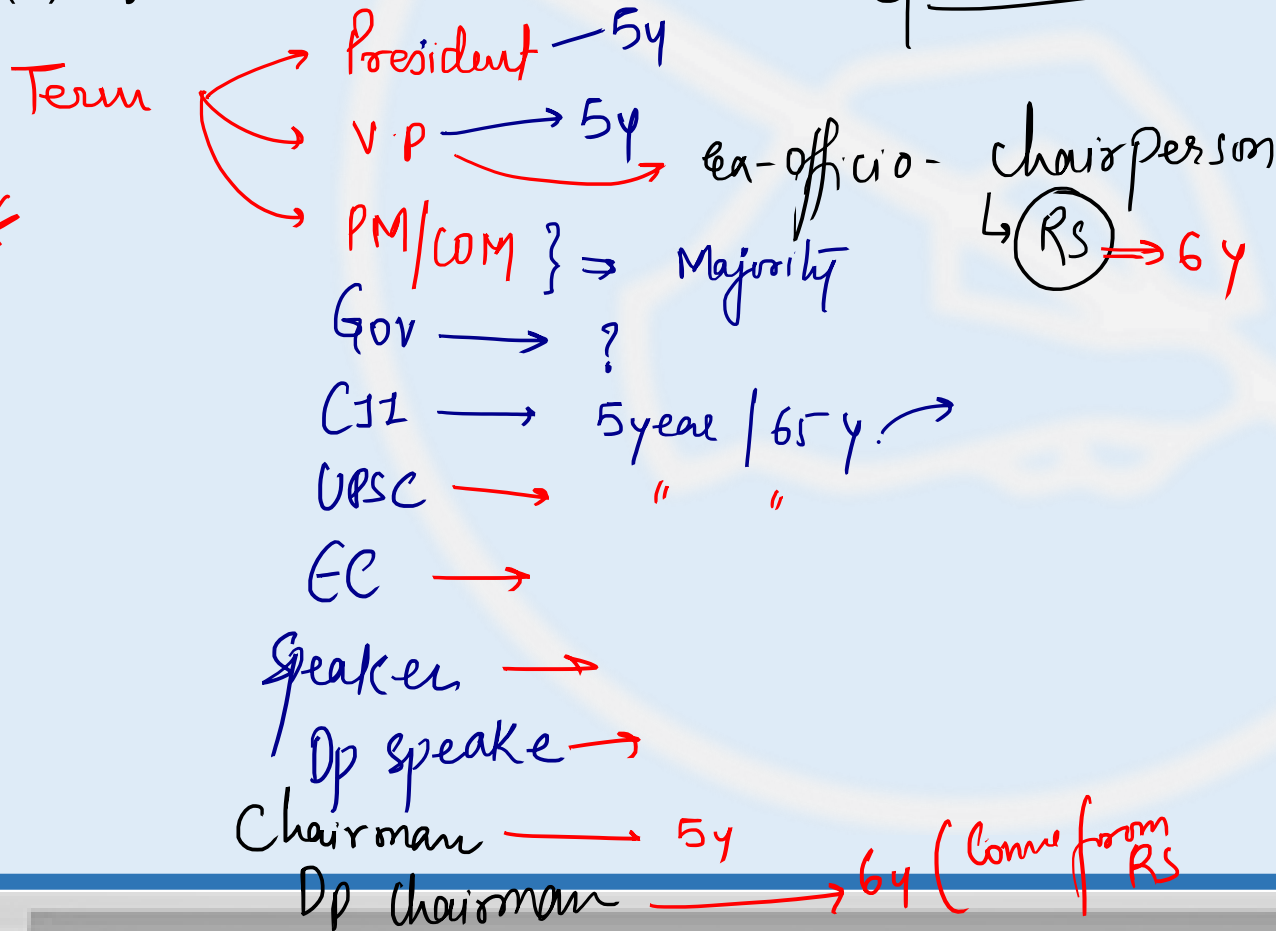 Term
President — 5y
V.P → 5y
ex-officio - Chairperson
↳ RS ⇒ 6 y
PM/COM } ⇒ Majority
Gov → ?
CJI → 5year / 65 y.
UPSC → " "
EC →
Speaker →
Dp speake →
Chairman → 5y
Dp Chairman → 6y (Come from RS